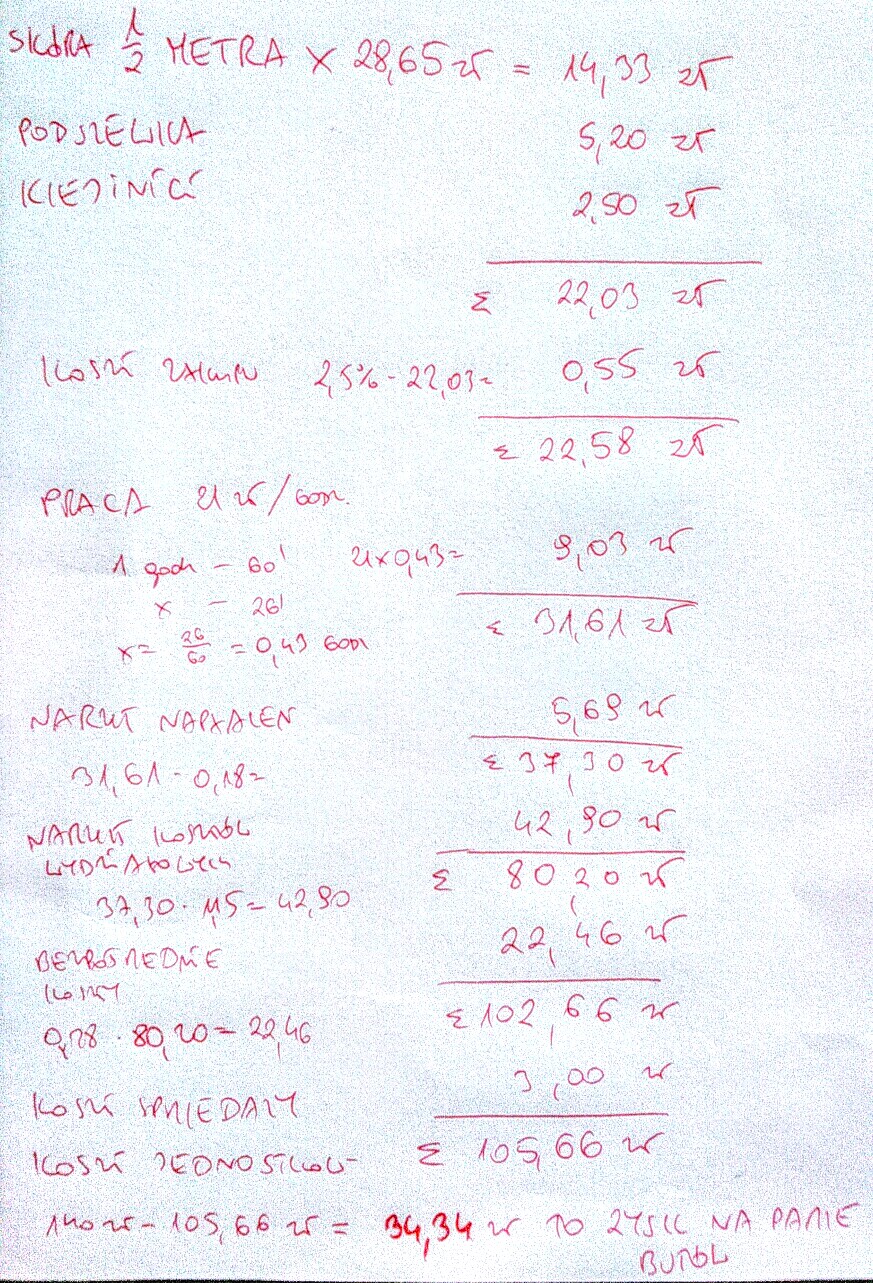 SKÓRA 1/2 METRA × 28,65 zł = 14,33 zł
PODSZEWKA 5,20 zł
KLEJ i NICI 2,50 zł
Σ 22,03 zł
KOSZT ZAKUPU 2,5% - 22,03= 0,55 zł
Σ 22,58 zł
PRACA 21 zł/GODZ.
1 godz - 60' 21×0,43= 9,03 zł
x - 26'
Σ 31,61 zł
x= 26/60 = 0,43 GODZ
NARZUT 5,69 zł
31,61 - 0,18= Σ 37,30 zł
NARZUT KOSZTÓW 42,90 zł
WYDZIAŁOWYCH Σ 80,20 zł
37,30 · 1,15= 42,90
22,46 zł
BEZPOŚREDNIE
KOSZTY Σ 102,66 zł
0,28 · 80,20= 22,46
3,00 zł
KOSZT SPRZEDAŻY
KOSZT JEDNOSTKOW- Σ 105,66 zł
140 zł - 105,66 zł = 34,34 zł TO ZYSK NA PARZE
BUTÓW